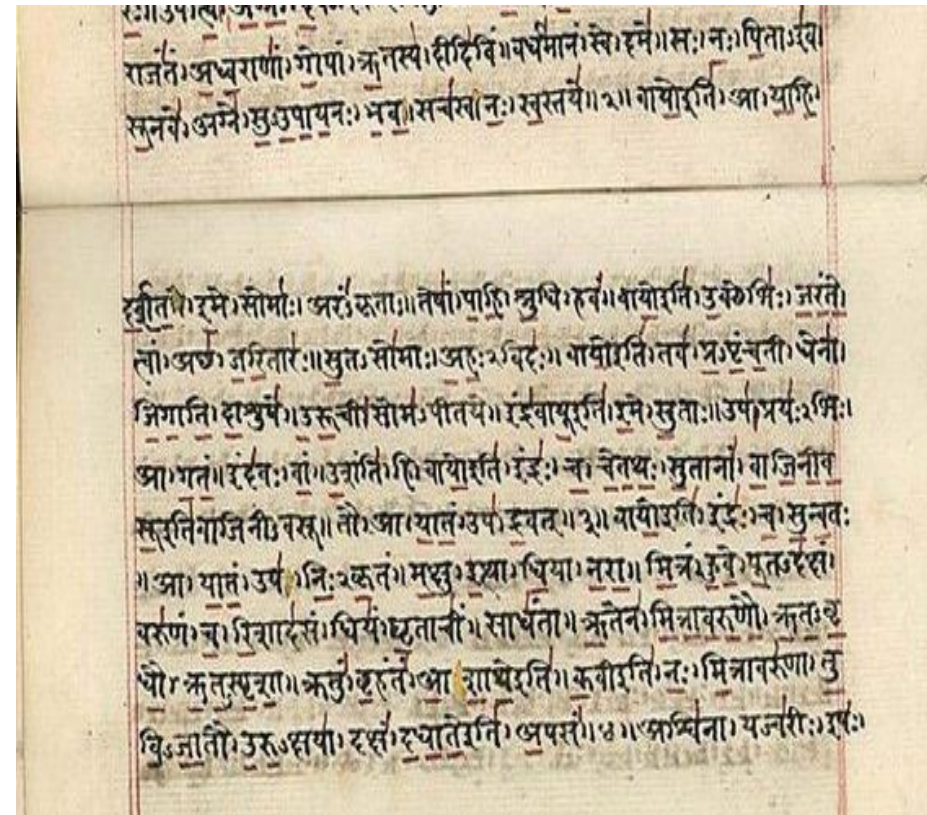 राजंतं। अध्वराणां। गोपां। ऋतस्य। दीदिविं॥ वर्धमानं। स्वे। दमे॥ सः। नः। पिताऽइव।
सूनवे। अग्ने। सुऽउपायनः। भव॥ सचस्व। नः। स्वस्तये॥२॥ वायोइति। आ। याहि।
दर्शत। इमे। सोमाः। अरंऽकृताः॥ तेषां। पाहि। श्रुधि। हवं॥ वायोइति। उक्थेभिः। जरंते।
त्वां। अच्छ। जरितारः॥ सुतऽसोमाः। अहःऽविदः॥ वायोइति। तव। प्रऽपृंचती। धेना।
जिगाति। दाशुषे॥ उरूची। सोमऽपीतये॥ इंद्रवायूइति। इमे। सुताः॥ उप। प्रयःऽभिः।
आ। गतं॥ इंदवः। वां॥ उशंति। हि। वायोइति। इंद्रः। च। चेतथः। सुतानां। वाजिनीव
सूइतिवाजिनीऽवसू॥ तौ। आ। यातं। उप। द्रवत्॥३॥ वायोइति। इंद्रः। च। सुन्वतः
॥ आ। यातं। उप। निःऽकृतं॥ मक्षु। इत्था। धिया। नरा॥ मित्रं। हुवे। पूतऽदक्षं।
वरुणं। च। रिशादसं। धियं। घृताचीं। साधंता॥ ऋतेन। मित्रावरुणौ। ऋतऽवृ
धौ। ऋतऽस्पृशा॥ क्रतुं। बृहंतं। आशाथेइति॥ कवीइति। नः। मित्रावरुणा। तु
विऽजातौ। उरुऽक्षया। दक्षं। दधातेइति। अपसं॥४॥ अश्विना। यज्वरीः। इषः।